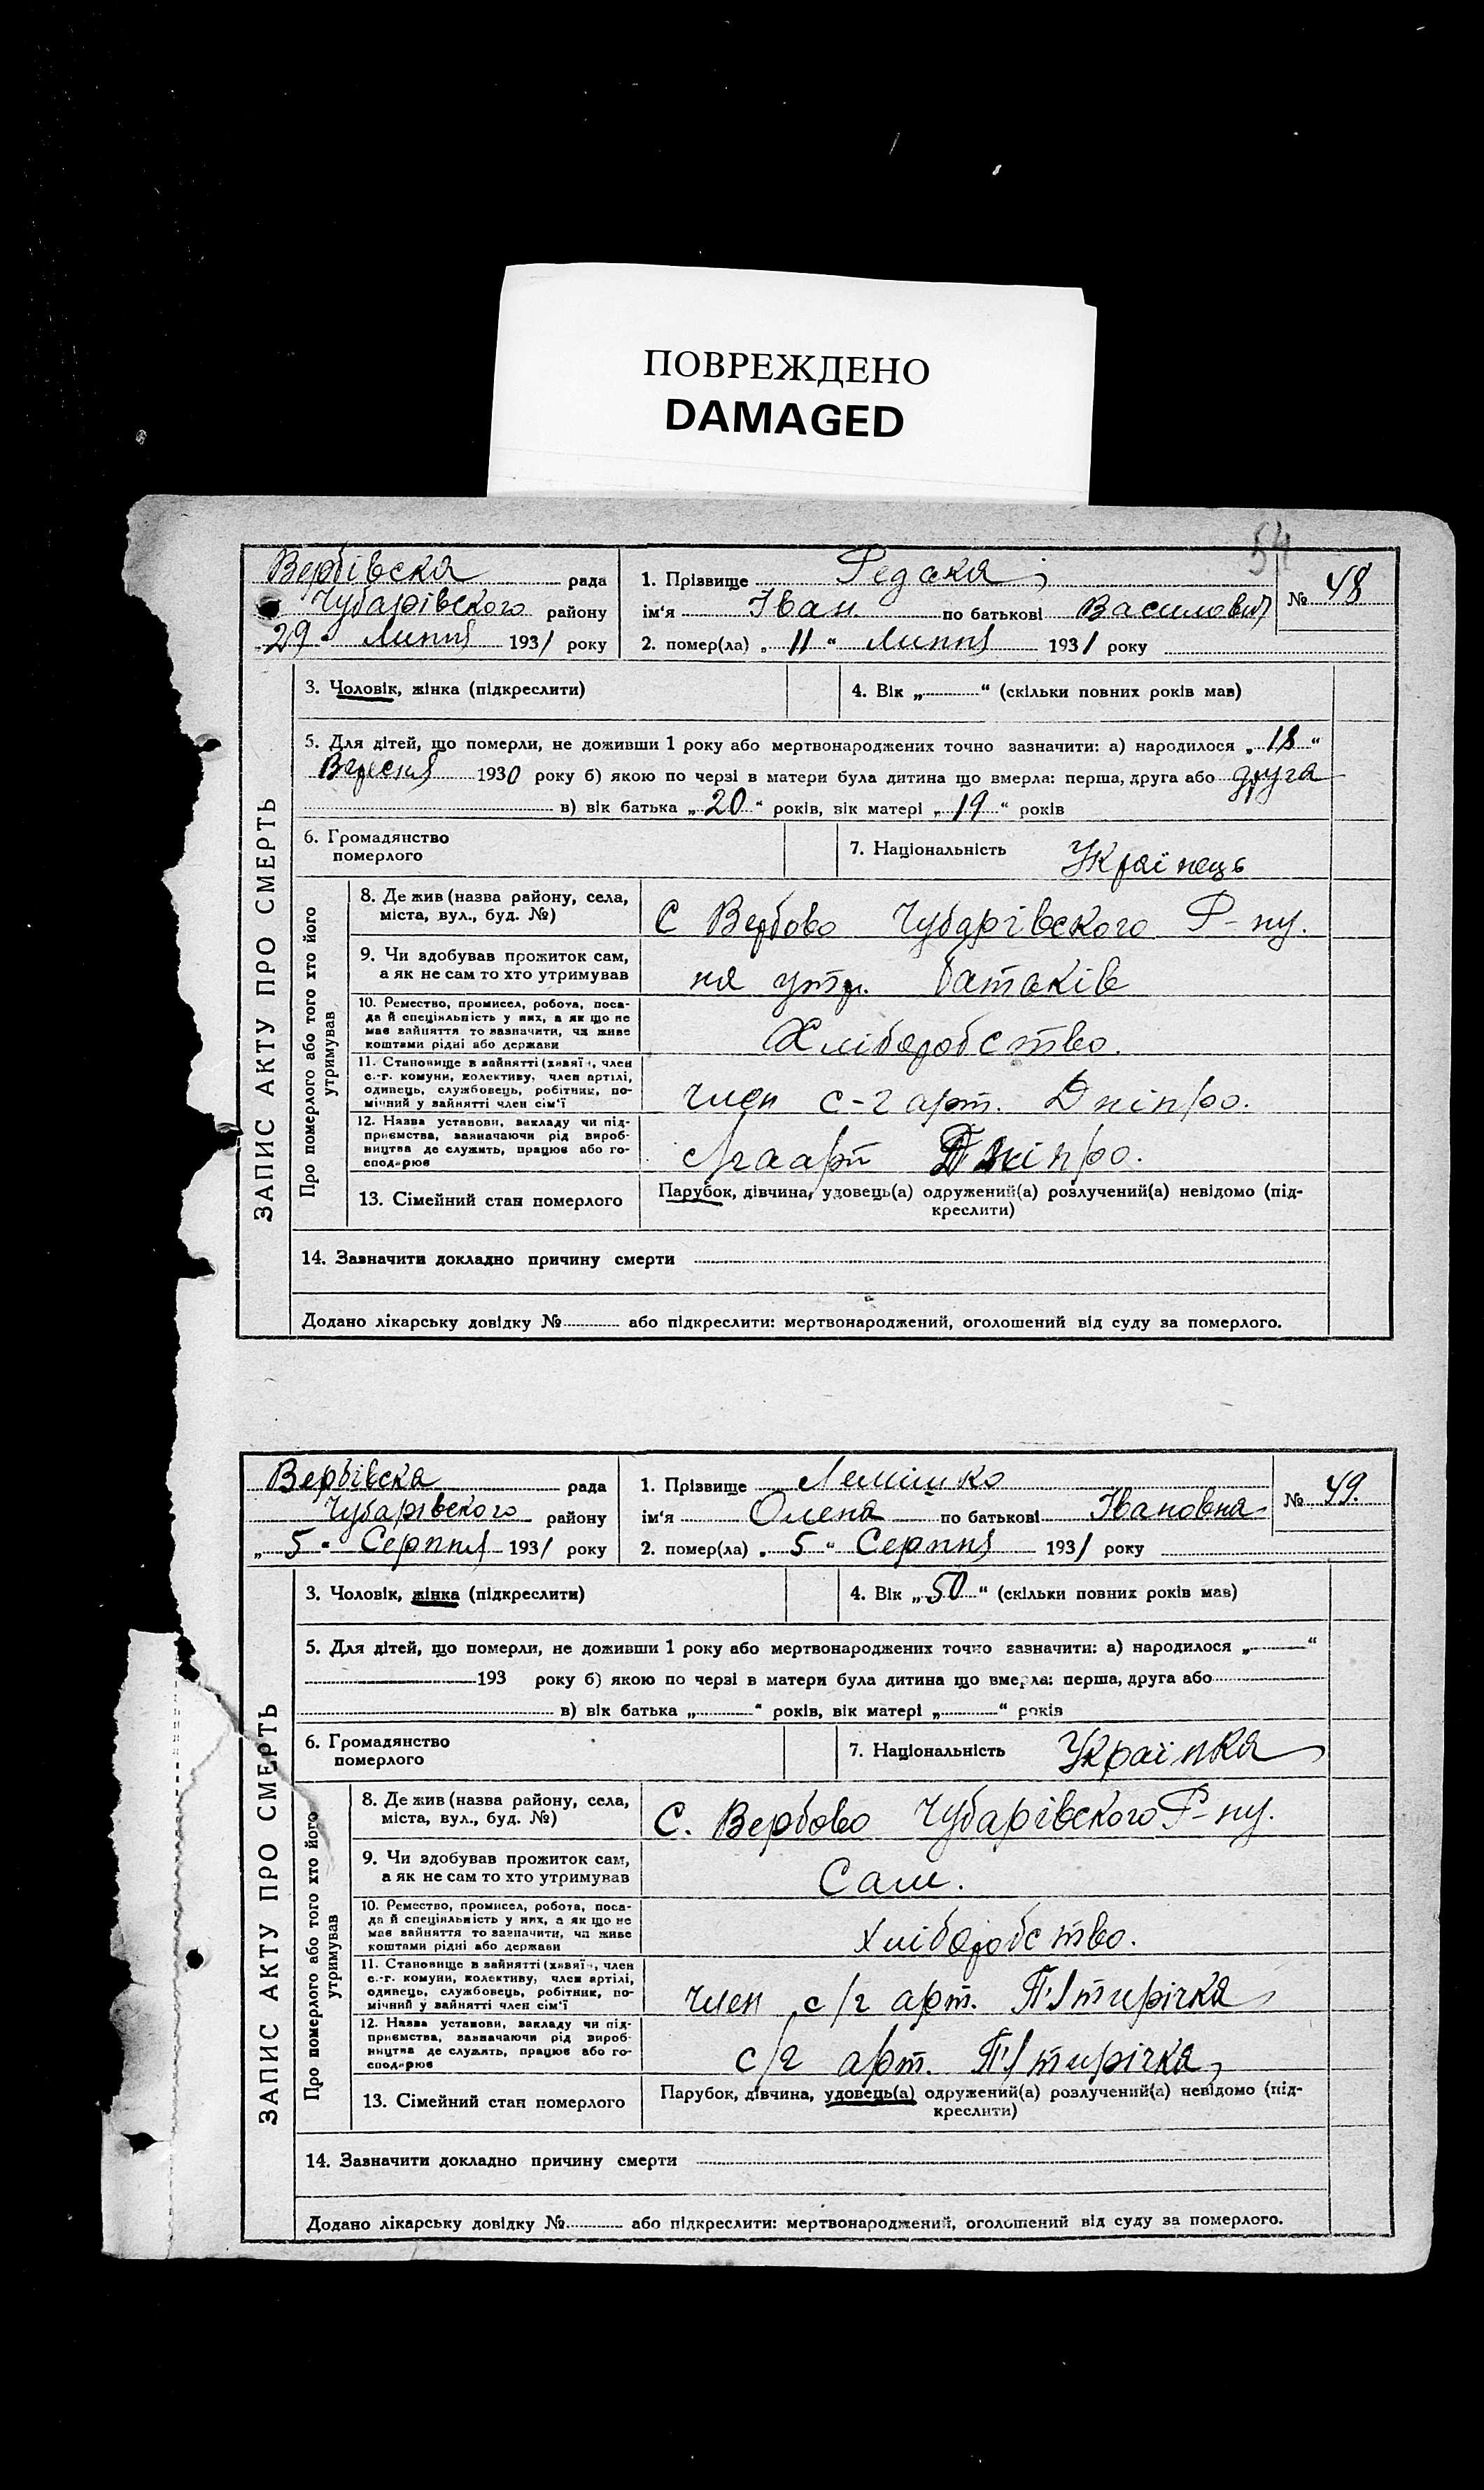 ПОВРЕЖДЕНО
DAMAGED
54
Вербівска рада
Чубарівського району
„29" Липня 1931 року
1. Прізвище Редька
ім'я Іван по батькові Василович
2. помер(ла) „11" Липня 1931 року
№ 48
ЗАПИС АКТУ ПРО СМЕРТЬ
3. Чоловік, жінка (підкреслити)
4. Вік „ " (скільки повних років мав)
5. Для дітей, що померли, не доживши 1 року або мертвонароджених точно зазначити: а) народилося „18"
Вересня 1930 року б) якою по черзі в матери була дитина що вмерла: перша, друга або друга
в) вік батька „20" років, вік матері „19" років
6. Громадянство
померлого
7. Національність Українець
Про померлого або того хто його
утримував
8. Де жив (назва району, села,
міста, вул., буд. №)
С Вербово Чубарівского Р-ну.
9. Чи здобував прожиток сам,
а як не сам то хто утримував
на утр. батьків
10. Ремество, промисел, робота, поса-
да й спеціяльність у них, а як що не
має зайняття то зазначити, чи живе
коштами рідні або держави
Хліборобство.
11. Становище в зайнятті (хазяїн, член
с.-г. комуни, колективу, член артілі,
одинець, службовець, робітник, по-
мічний у зайнятті член сім'ї
член с-г арт. Дніпро.
12. Назва установи, закладу чи під-
приємства, зазначаючи рід вироб-
ництва де служить, працює або го-
сподарює
с/г арт Дніпро.
13. Сімейний стан померлого
Парубок, дівчина, удовець(а) одружений(а) розлучений(а) невідомо (під-
креслити)
14. Зазначити докладно причину смерти
Додано лікарську довідку № або підкреслити: мертвонароджений, оголошений від суду за померлого.
Вербівска рада
Чубарівського району
„5" Серпня 1931 року
1. Прізвище Лемішко
ім'я Олена по батькові Івановна
2. помер(ла) „5" Серпня 1931 року
№ 49.
ЗАПИС АКТУ ПРО СМЕРТЬ
3. Чоловік, жінка (підкреслити)
4. Вік „50" (скільки повних років мав)
5. Для дітей, що померли, не доживши 1 року або мертвонароджених точно зазначити: а) народилося „ "
193 року б) якою по черзі в матери була дитина що вмерла: перша, друга або
в) вік батька „ " років, вік матері „ " років
6. Громадянство
померлого
7. Національність Українка
Про померлого або того хто його
утримував
8. Де жив (назва району, села,
міста, вул., буд. №)
С. Вербово Чубарівского Р-ну.
9. Чи здобував прожиток сам,
а як не сам то хто утримував
Сам.
10. Ремество, промисел, робота, поса-
да й спеціяльність у них, а як що не
має зайняття то зазначити, чи живе
коштами рідні або держави
Хліборобство.
11. Становище в зайнятті (хазяїн, член
с.-г. комуни, колективу, член артілі,
одинець, службовець, робітник, по-
мічний у зайнятті член сім'ї
член с/г арт. П'ятирічка
12. Назва установи, закладу чи під-
приємства, зазначаючи рід вироб-
ництва де служить, працює або го-
сподарює
с/г арт. П'ятирічка
13. Сімейний стан померлого
Парубок, дівчина, удовець(а) одружений(а) розлучений(а) невідомо (під-
креслити)
14. Зазначити докладно причину смерти
Додано лікарську довідку № або підкреслити: мертвонароджений, оголошений від суду за померлого.